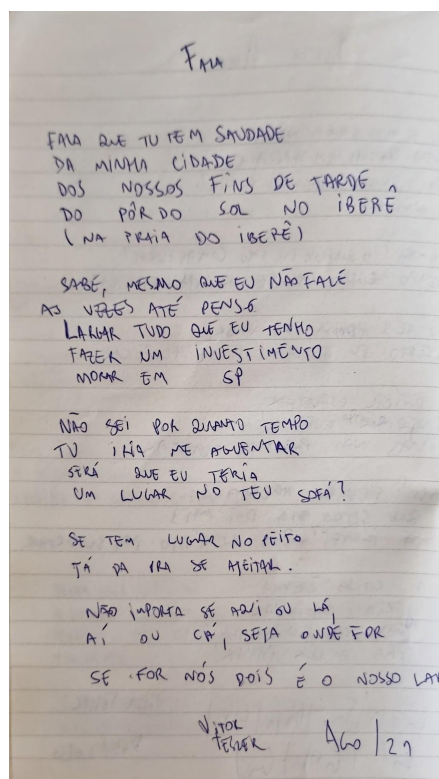 FALA
FALA QUE TU TEM SAUDADE
DA MINHA CIDADE
DOS NOSSOS FINS DE TARDE
DO PÔR DO SOL NO IBERÊ
(NA PRAIA DO IBERÊ)
SABE, MESMO QUE EU NÃO FALE
AS VEZES ATÉ PENSO
LARGAR TUDO QUE EU TENHO
FAZER UM INVESTIMENTO
MORAR EM SP
NÃO SEI POR QUANTO TEMPO
TU IRIA ME AGUENTAR
SERÁ QUE EU TERIA
UM LUGAR NO TEU SOFÁ?
SE TEM LUGAR NO PEITO
JÁ DA PRA SE AJEITAR.
NÃO IMPORTA SE AQUI OU LÁ,
AÍ OU CÁ, SEJA ONDE FOR
SE FOR NÓS DOIS É O NOSSO LAR
VITOR
AGO/21